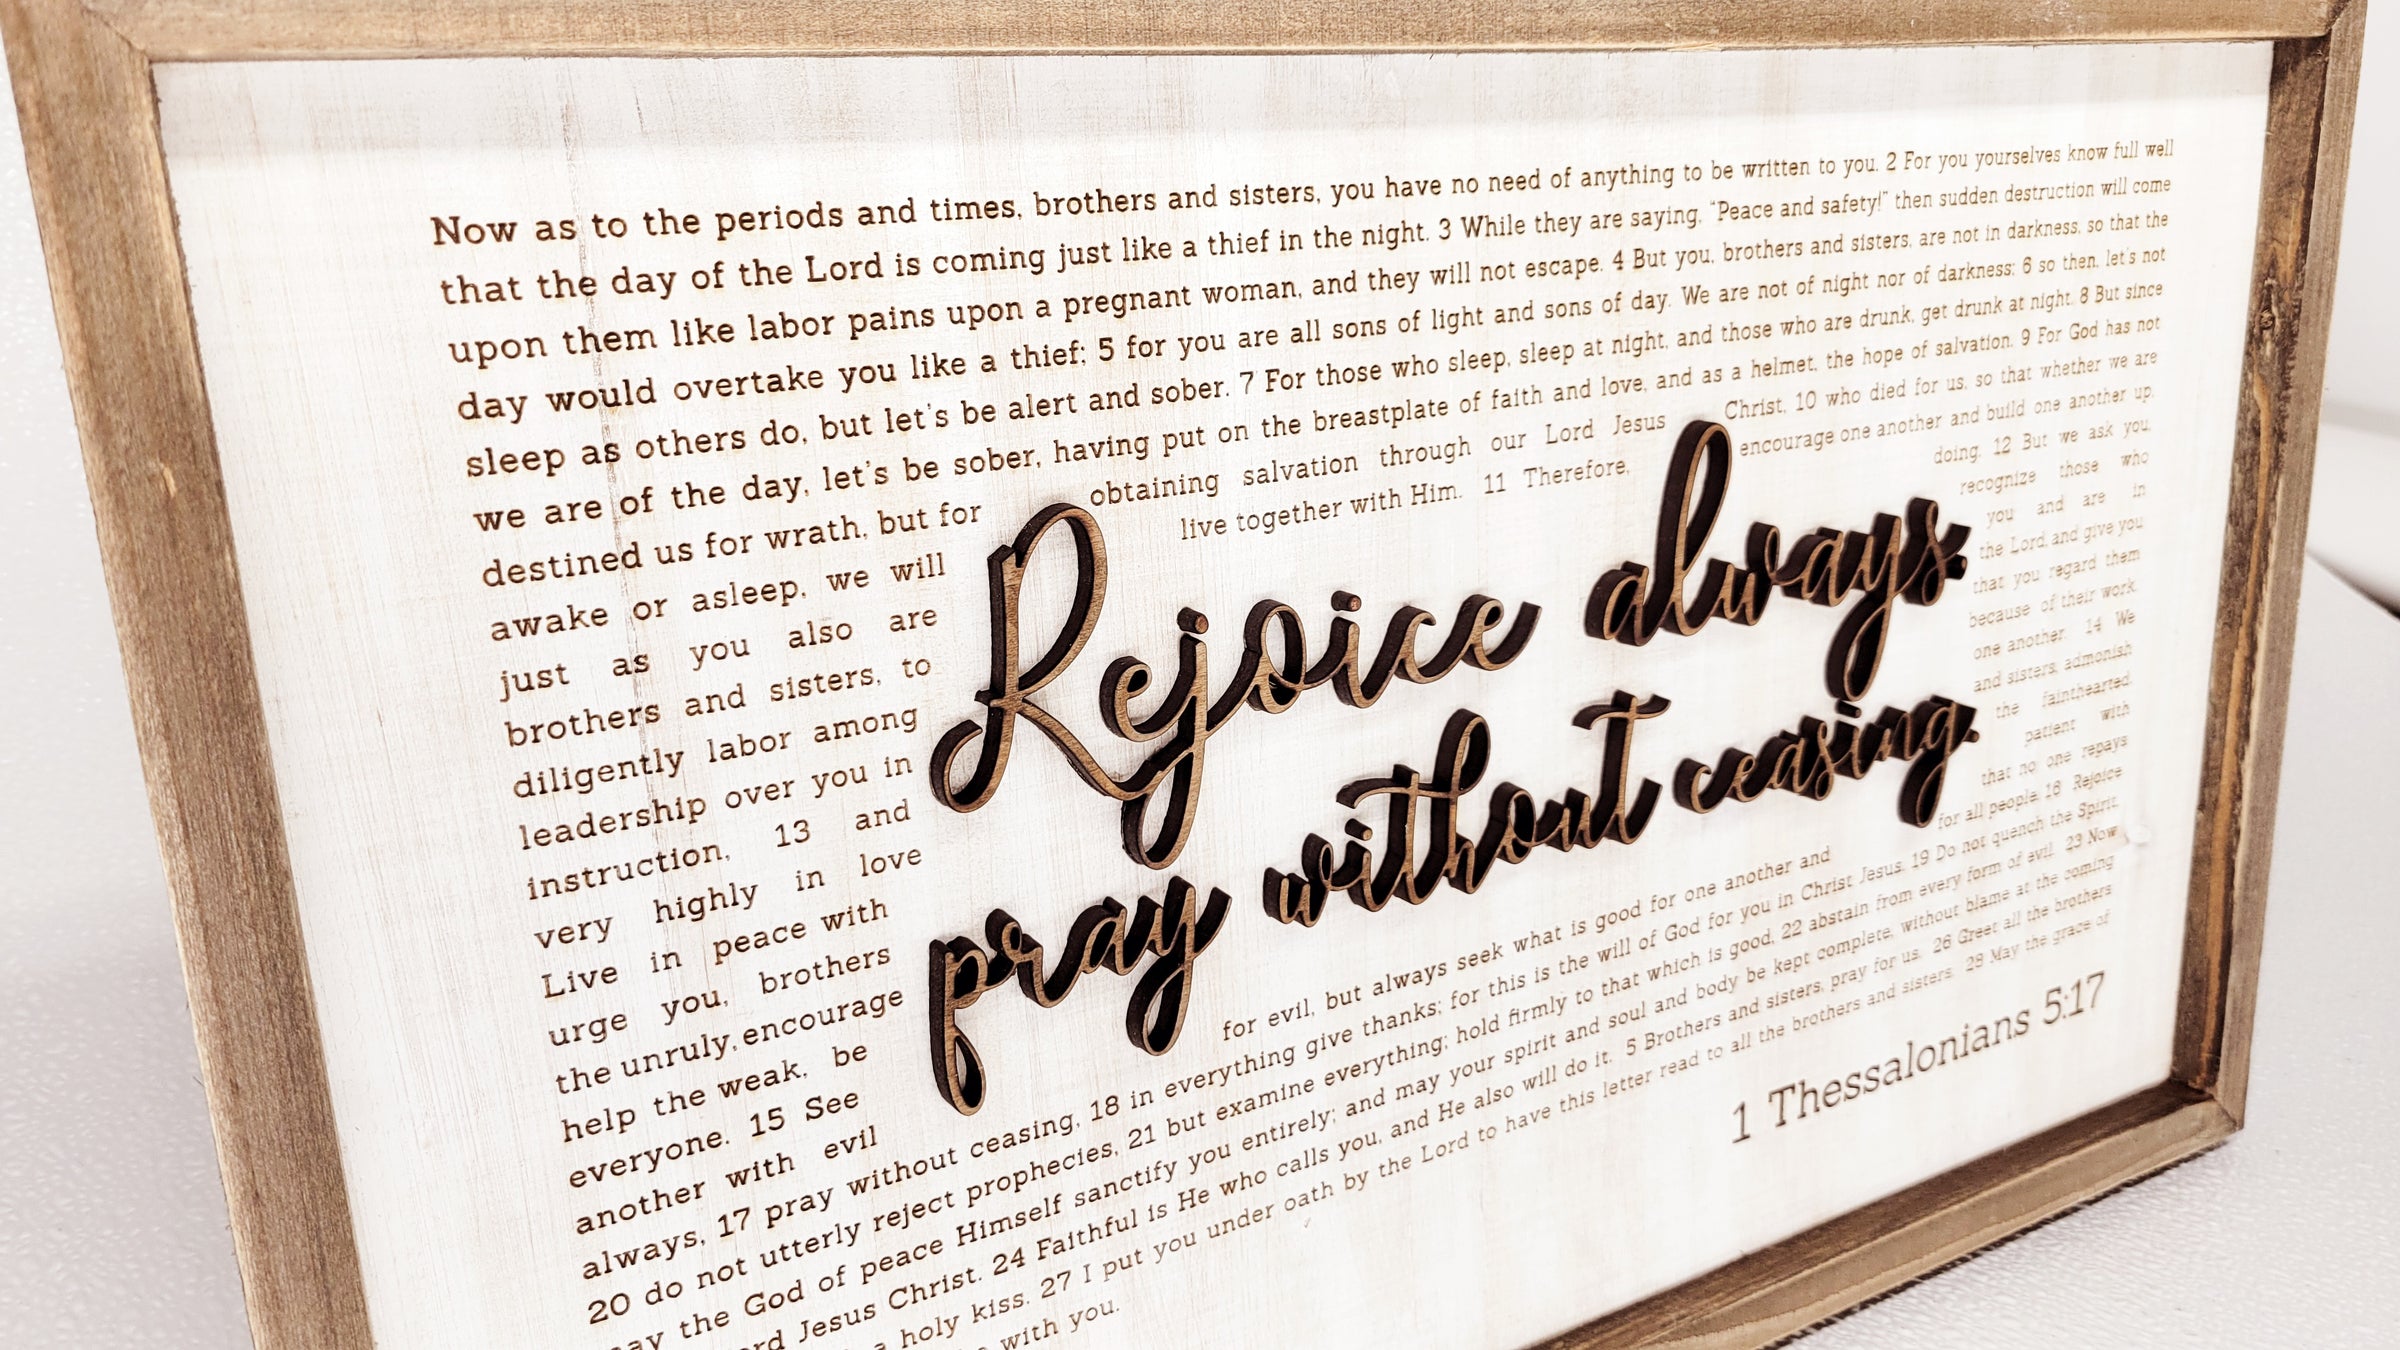 Now as to the periods and times, brothers and sisters, you have no need of anything to be written to you. 2 For you yourselves know full well
that the day of the Lord is coming just like a thief in the night. 3 While they are saying, “Peace and safety!” then sudden destruction will come
upon them like labor pains upon a pregnant woman, and they will not escape. 4 But you, brothers and sisters, are not in darkness, so that the
day would overtake you like a thief; 5 for you are all sons of light and sons of day. We are not of night nor of darkness; 6 so then, let's not
sleep as others do, but let's be alert and sober. 7 For those who sleep, sleep at night, and those who are drunk, get drunk at night. 8 But since
we are of the day, let's be sober, having put on the breastplate of faith and love, and as a helmet, the hope of salvation. 9 For God has not
destined us for wrath, but for obtaining salvation through our Lord Jesus Christ, 10 who died for us, so that whether we are
awake or asleep, we will live together with Him. 11 Therefore, encourage one another and build one another up,
just as you also are doing. 12 But we ask you,
brothers and sisters, to recognize those who
diligently labor among you and are in
leadership over you in the Lord, and give you
instruction, 13 and that you regard them
very highly in love because of their work.
Live in peace with one another. 14 We
urge you, brothers and sisters, admonish
the unruly, encourage the fainthearted,
help the weak, be patient with
everyone. 15 See that no one repays
another with evil for evil, but always seek what is good for one another and for all people. 16 Rejoice
always, 17 pray without ceasing, 18 in everything give thanks; for this is the will of God for you in Christ Jesus. 19 Do not quench the Spirit,
20 do not utterly reject prophecies, 21 but examine everything; hold firmly to that which is good, 22 abstain from every form of evil. 23 Now
may the God of peace Himself sanctify you entirely; and may your spirit and soul and body be kept complete, without blame at the coming
Jesus Christ. 24 Faithful is He who calls you, and He also will do it. 5 Brothers and sisters, pray for us. 26 Greet all the brothers
a holy kiss. 27 I put you under oath by the Lord to have this letter read to all the brothers and sisters. 28 May the grace of
with you.
Rejoice always.
pray without ceasing.
1 Thessalonians 5:17